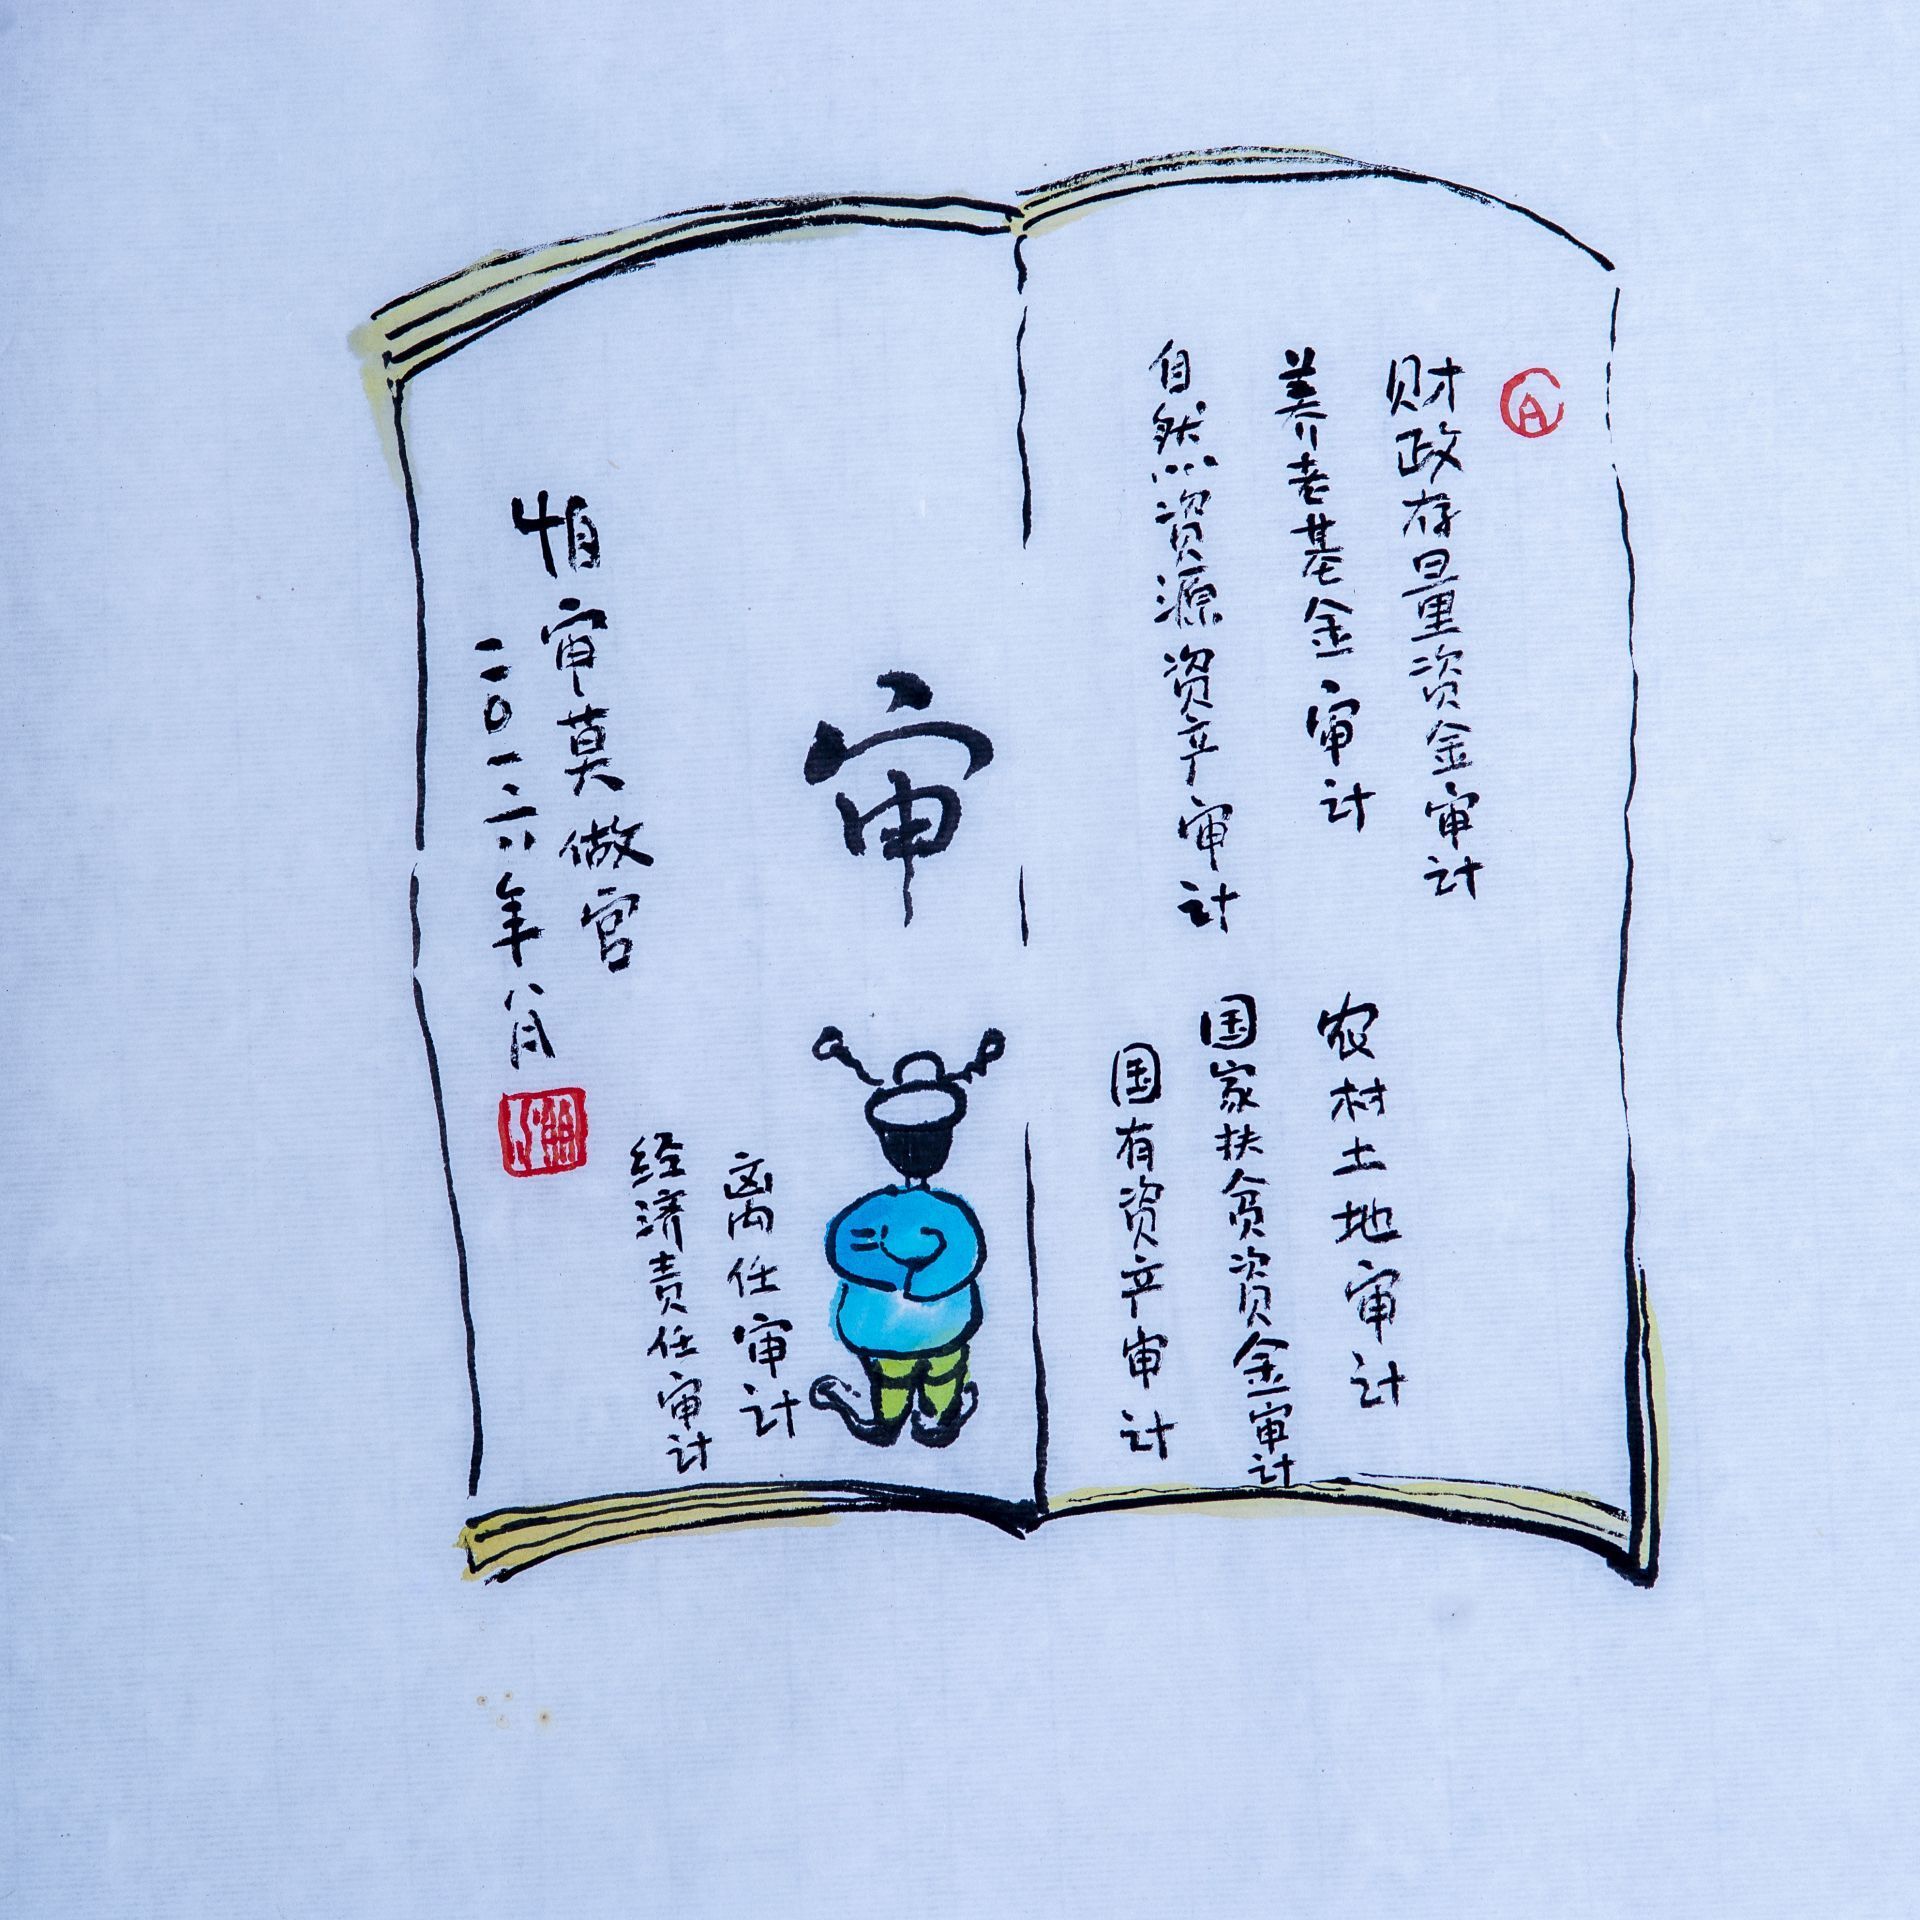 财政存量资金审计
养老基金审计
自然资源资产审计
农村土地审计
国家扶贫资金审计
国有资产审计
审
离任审计
经济责任审计
怕审莫做官
二〇一六年八月